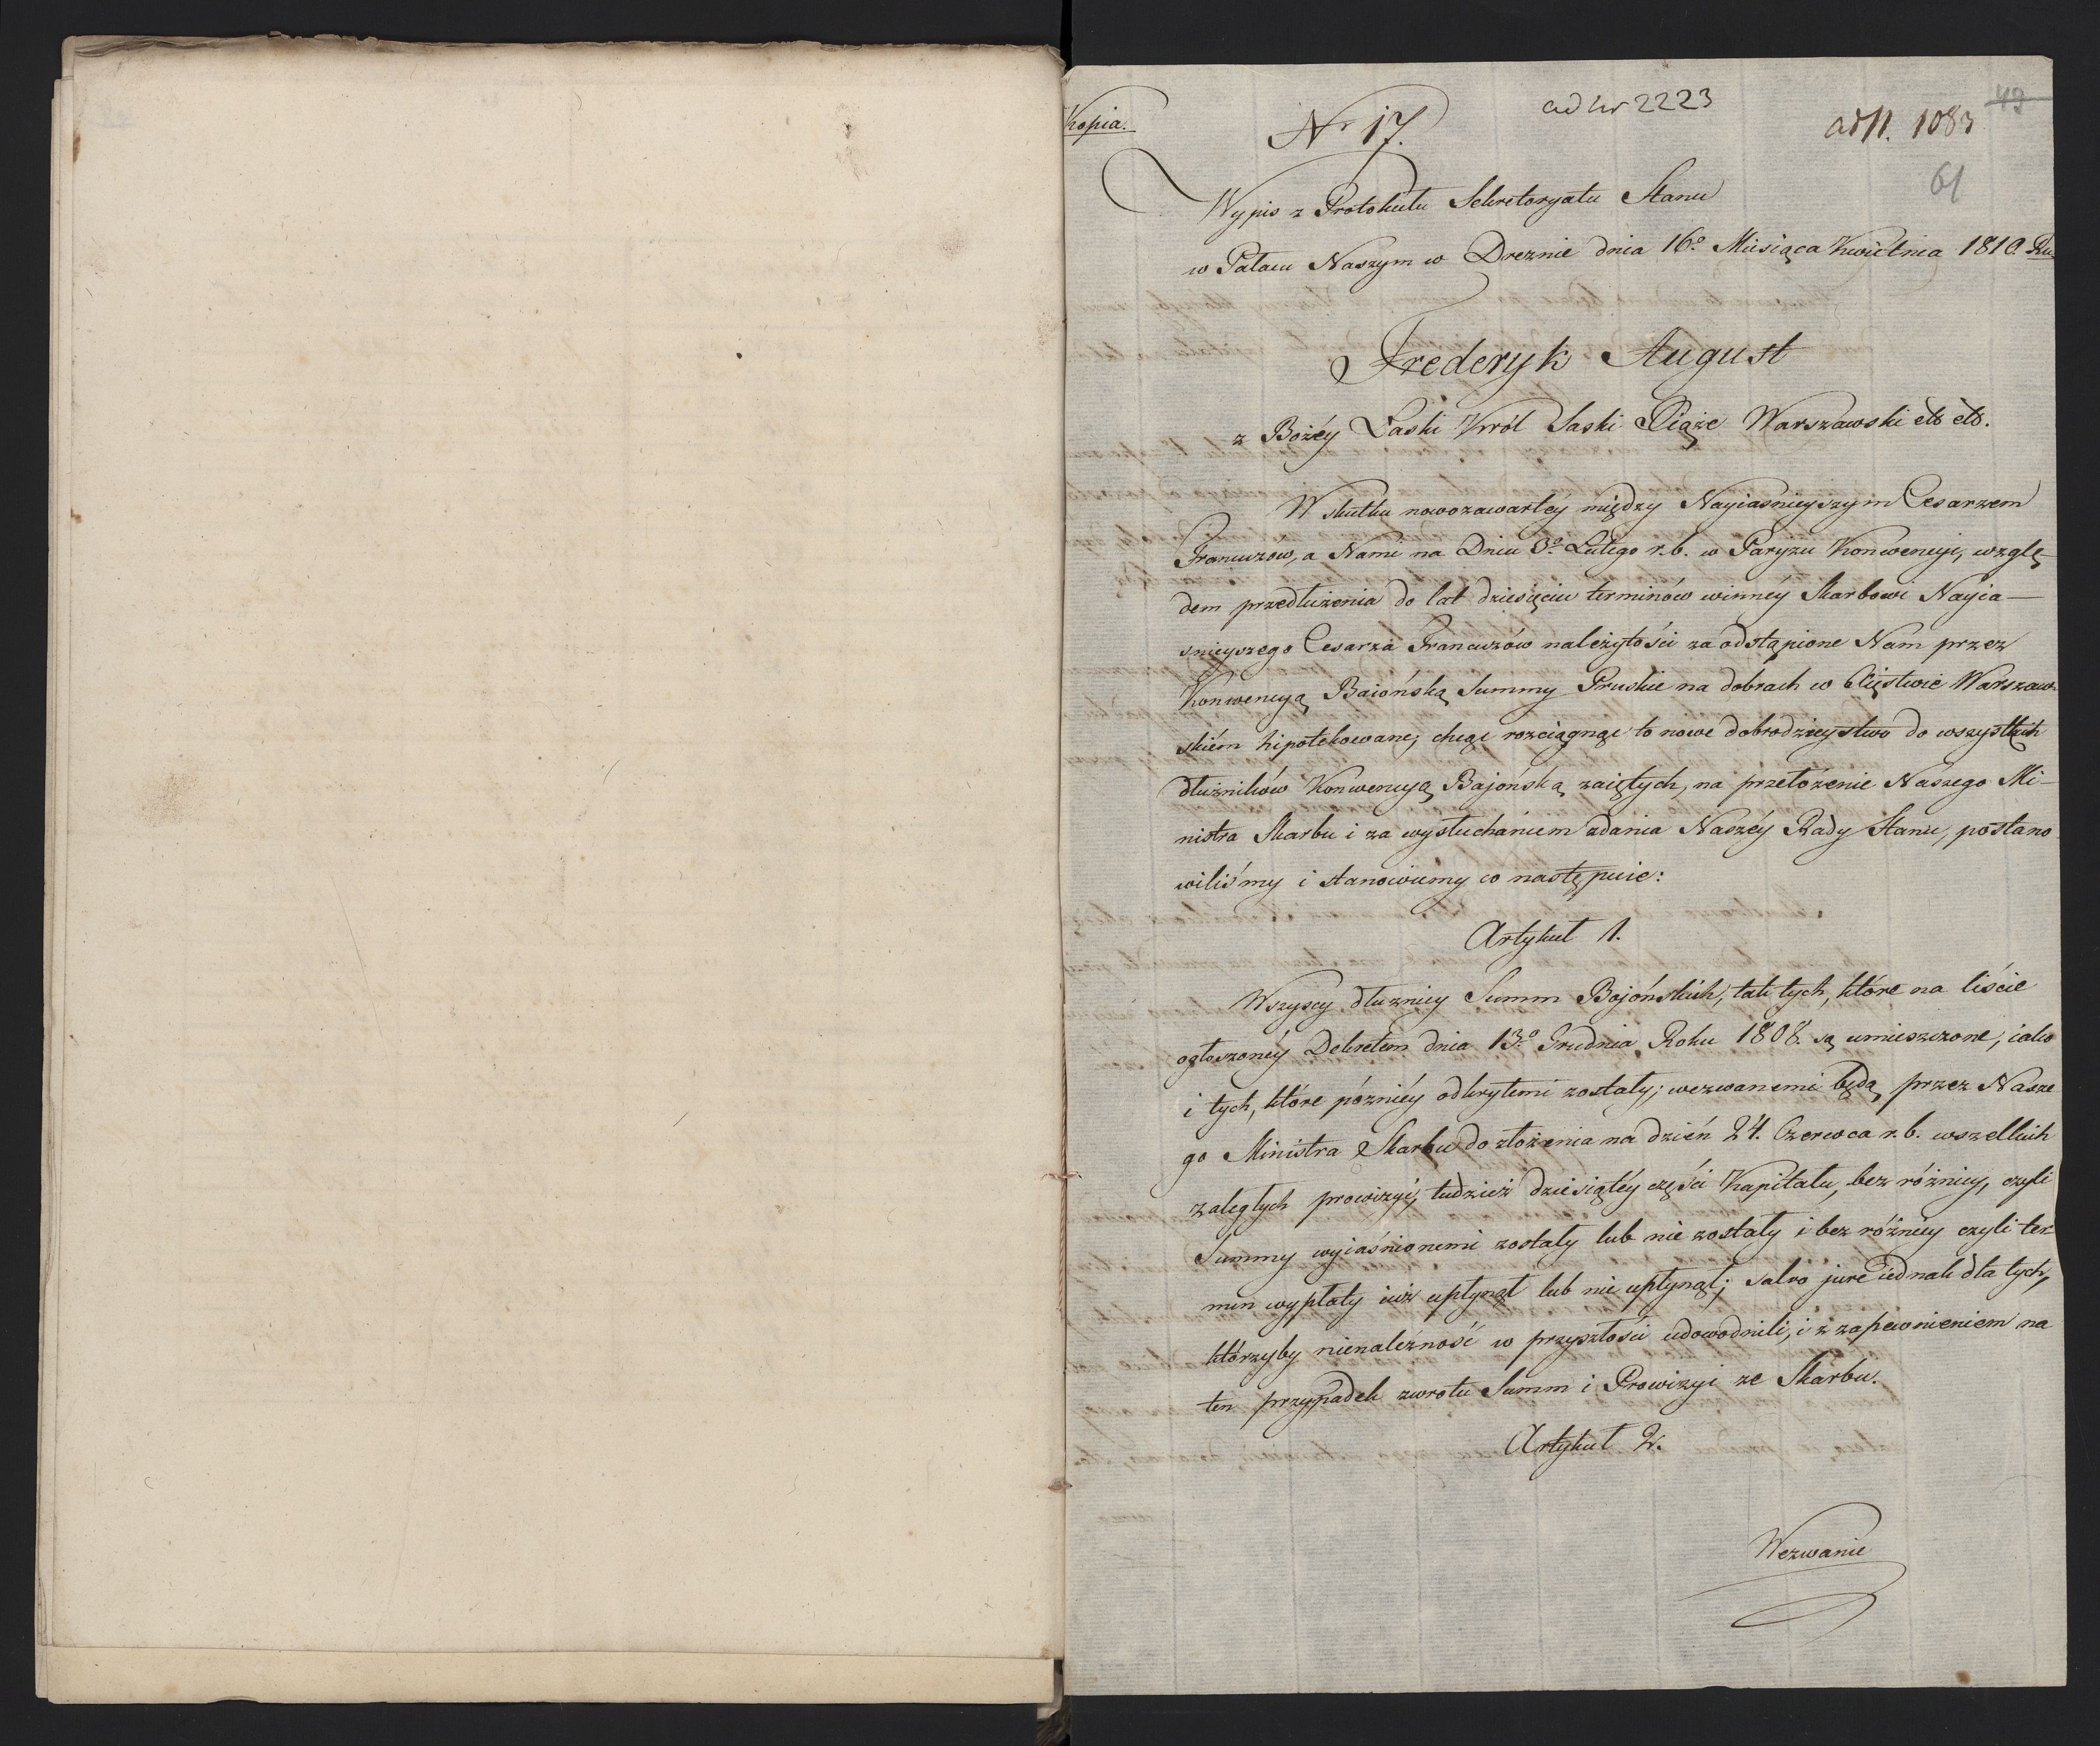 Kopia.
Nr 17.
ad nr 2223
ad N. 1083
43
61
Wypis z Protokułu Sekretoryatu Stanu
w Pałacu Naszym w Dreznie dnia 16º Miesiąca Kwietnia 1810. Ru.
Frederyk August
z Bożéy Łaski Król Saski Xiąże Warszawski etc etc.
W skutku nowozawartéy między Nayiaśnieyszym Cesarzem
Francuzow, a Nami na Dniu 8º Lutego r. b. w Paryżu Konwencyi, wzglę-
dem przedłużenia do lat dziesięciu terminów winnéy Skarbowi Nayia-
śnieyszego Cesarza Francuzów należytości za odstąpione Nam przez
Konwencyą Baiońską Summy Pruskie na dobrach w Xięstwie Warszaw-
skiém hipotekowane; chcąc rozciągnąć to nowe dobrodzieystwo do wszystkich
dłużników Konwencyą Bajońską zaiętych, na przełożenie Naszego Mi-
nistra Skarbu i za wysłuchaniem zdania Naszéy Rady Stanu, postano-
wiliśmy i stanowiemy co następuie:
Artykuł 1.
Wszyscy dłużnicy Summ Bajońskich, tak tych, które na liście
ogłoszonéy Dekretem dnia 13º Grudnia Roku 1808. są umieszczone, iako
i tych, które późniéy odkrytemi zostały; wezwanemi będą przez Nasze
go Ministra Skarbu do złożenia na dzień 24. Czerwca r. b. wszelkich
zaległych prowizyi, tudzież dziesiątéy części Kapitału, bez różnicy, czyli
Summy wyiaśnionemi zostały lub nie zostały i bez różnicy czyli ter-
min wypłaty iuż upłynął lub nie upłynął; salvo jure iednak dla tych,
którzyby nienależność w przyszłości udowodnili, i z zapewnieniem na
ten przypadek zwrotu Summ i Prowizyi ze Skarbu.
Artykuł 2.
Wezwanie